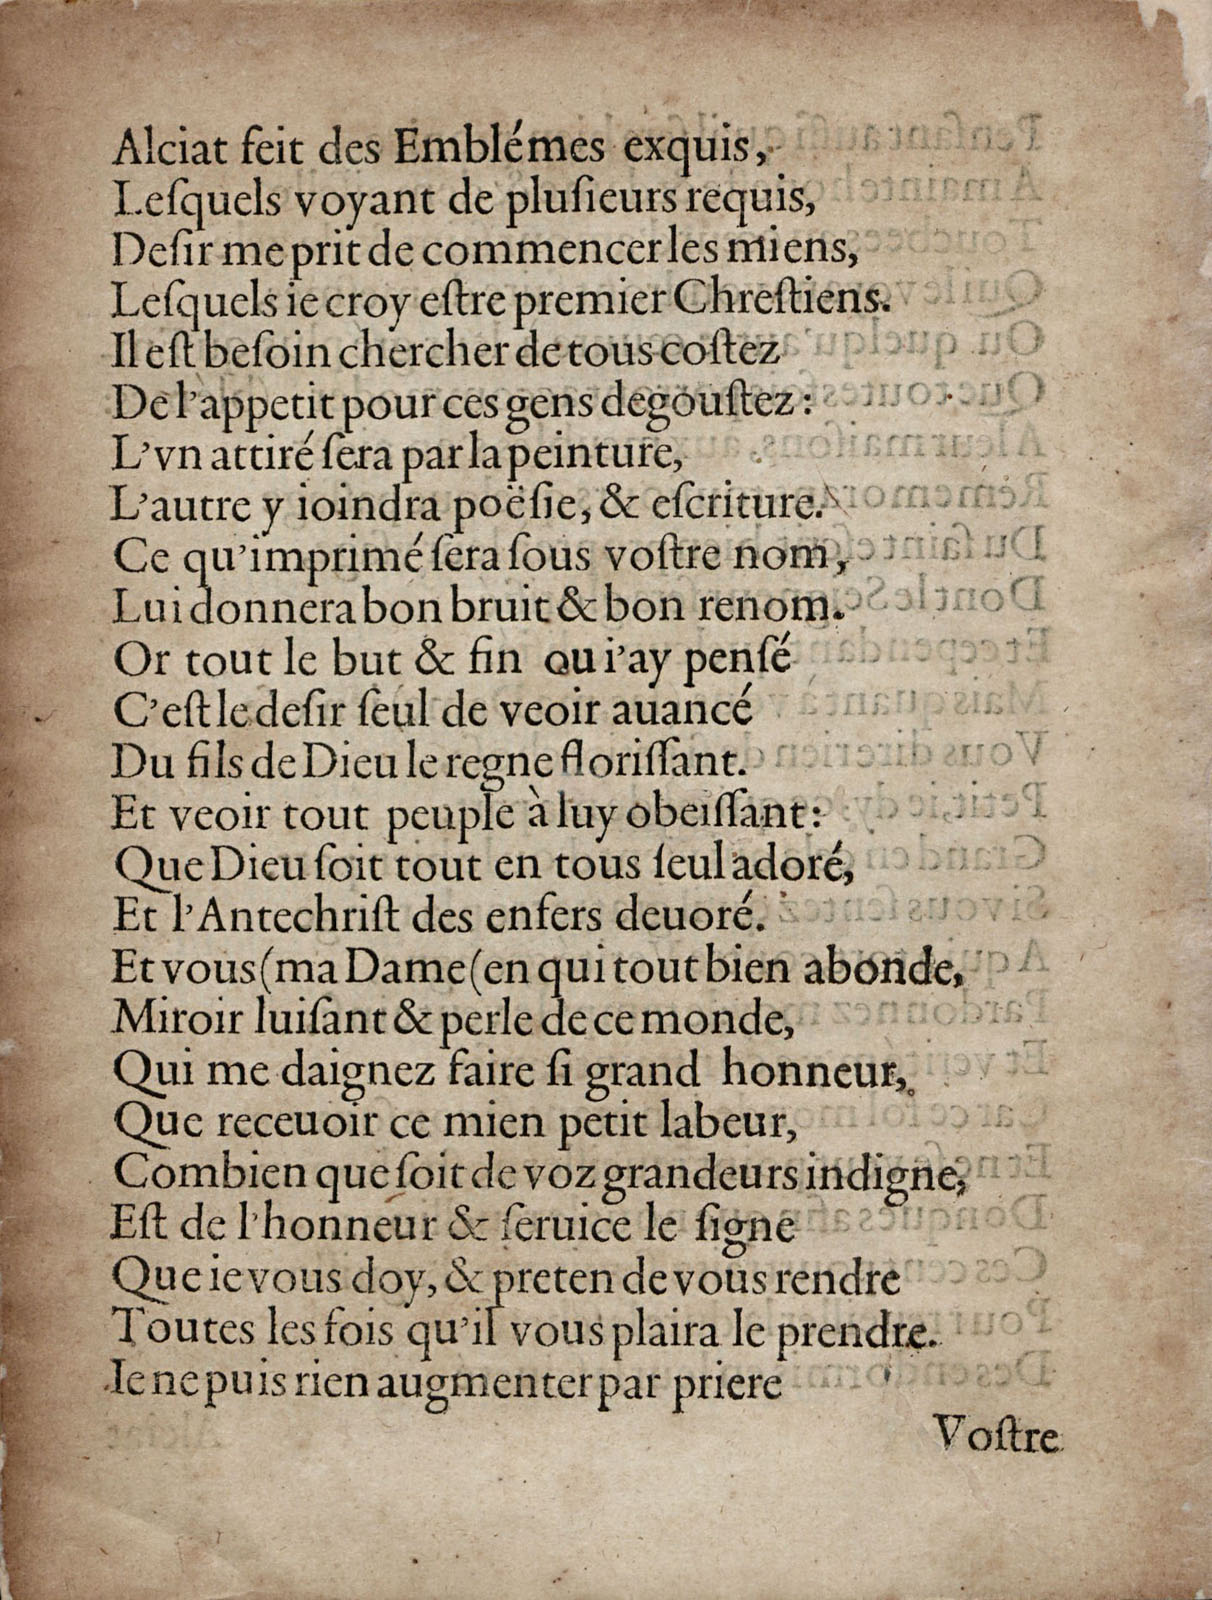 Alciat feit des Emblémes exquis,
Leſquels voyant de pluſieurs requis,
Deſir me prit de commencer les miens,
Leſquels ie croy eſtre premier Chreſtiens.
Il eſt beſoin chercher de tous coſtez
De l'appetit pour ces gens degouſtez:
L'vn attiré ſera par la peinture,
L'autre y ioindra poëſie, & eſcriture.
Ce qu'imprimé ſera ſous voſtre nom,
Lui donnera bon bruit & bon renom.
Or tout le but & fin ou i'ay penſé
C'eſt le deſir ſeul de veoir auancé
Du fils de Dieu le regne floriſſant.
Et veoir tout peuple à luy obeiſſant:
Que Dieu ſoit tout en tous ſeul adoré,
Et l'Antechriſt des enfers deuoré.
Et vous (ma Dame (en qui tout bien abonde,
Miroir luiſant & perle de ce monde,
Qui me daignez faire ſi grand honneur,
Que receuoir ce mien petit labeur,
Combien que ſoit de voz grandeurs indigne,
Eſt de l'honneur & ſeruice le ſigne
Que ie vous doy, & preten de vous rendre
Toutes les fois qu'il vous plaira le prendre.
Ie ne puis rien augmenter par priere
Voſtre